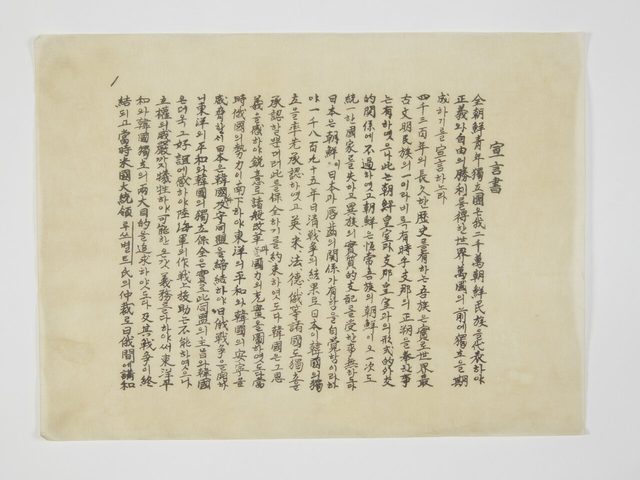 宣言書
全朝鮮青年獨立團은我二千萬朝鮮民族을代表하야
正義와自由의勝利를得한世界萬國의前에獨立을期
成하기를宣言하노라
四千三百年의長久한歷史를有하는吾族은實로世界最
古文明民族의一이라비록有時乎支那의正朔을奉한事
는有하엿으나此는朝鮮皇室과支那皇室과의形式的外交
的關係에不過하엿고朝鮮은恒常吾族의朝鮮이오一次도
統一한國家를失하고異族의實質的支配를受한事無하도다
日本은朝鮮이日本과唇齒의關係가有함을自覺함이라하
야一千八百九十五年日清戰爭의結果로日本이韓國의獨
立을率先承認하엿고英、米、法、德、俄等諸國도獨立을
承認할뿐더러此를保全하기를約束하엿도다韓國은그恩
義를感하야銳意로諸般改革과國力의充實을圖하엿도다當
時俄國의勢力이南下하야東洋의平和와韓國의安寧을
威脅할새日本은韓國과攻守同盟을締結하야日俄戰爭을開하
니東洋의平和와韓國의獨立保全은實로此同盟의主旨와韓國
은더욱그好誼에感하야陸海軍의作戰上援助는不能하엿으나
主權의威嚴까지犧牲하야可能한온갖義務를다하야써東洋平
和와韓國獨立의兩大目的을追求하얏도다及其戰爭이終
結되고當時米國大統領루쓰벨트氏의仲裁로日俄間에講和